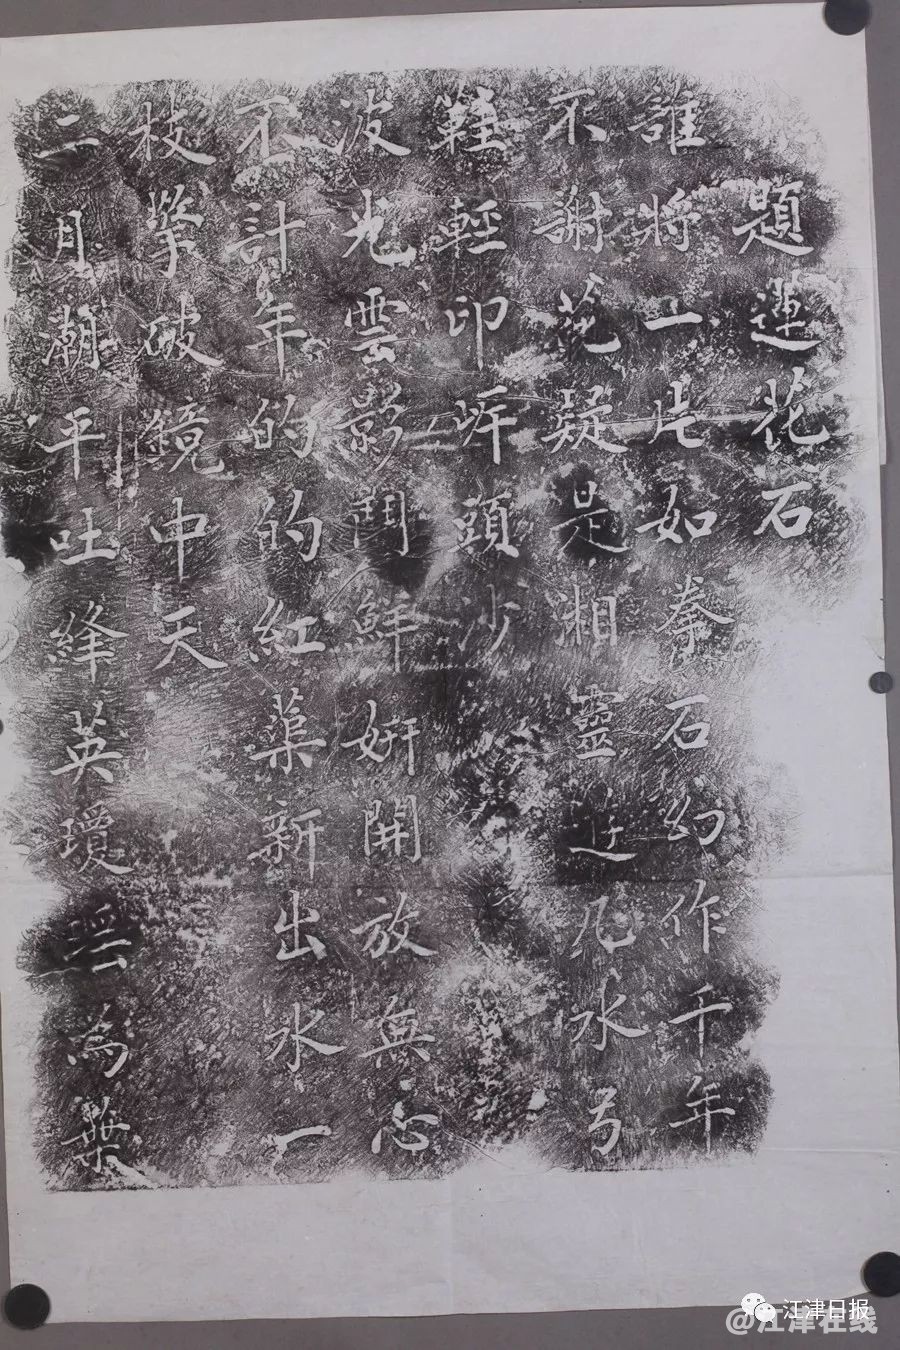 題蓮花石
誰將一片如拳石幻作千年
不謝花疑是湘靈遊凡水弓
鞋輕印岸頭沙
波光雲影鬥鮮妍開放無心
不計年的的紅蕖新出水一
枝擎破鏡中天
二月潮平吐絳英瓊瑤為葉
江津日报
@江津在线